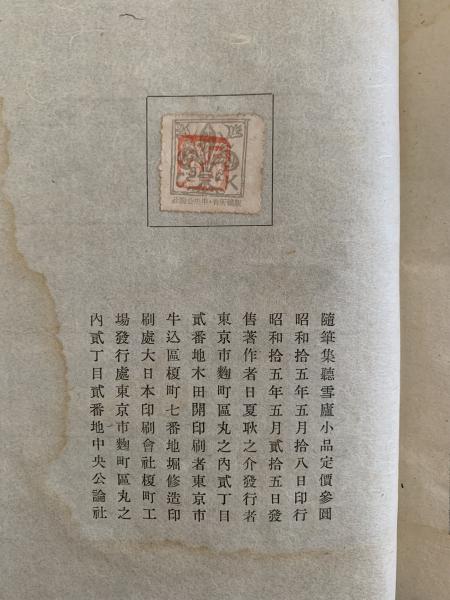 版權所有・中央公論社
隨筆集聽雪廬小品定價參圓
昭和拾五年五月拾八日印行
昭和拾五年五月貳拾五日發
售著作者日夏耿之介發行者
東京市麴町區丸之內貳丁目
貳番地木田開印刷者東京市
牛込區榎町七番地堀修造印
刷處大日本印刷會社榎町工
場發行處東京市麴町區丸之
內貳丁目貳番地中央公論社